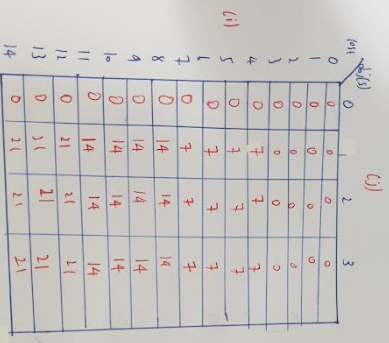 (j)
obj(s) 0 1 2 3
(i)
0 0 0 0 0
1 0 0 0 0
2 0 0 0 0
3 0 0 0 0
4 0 7 7 7
5 0 7 7 7
6 0 7 7 7
7 0 7 7 7
8 0 14 14 14
9 0 14 14 14
10 0 14 14 14
11 0 14 14 14
12 0 21 21 21
13 0 21 21 21
14 0 21 21 21